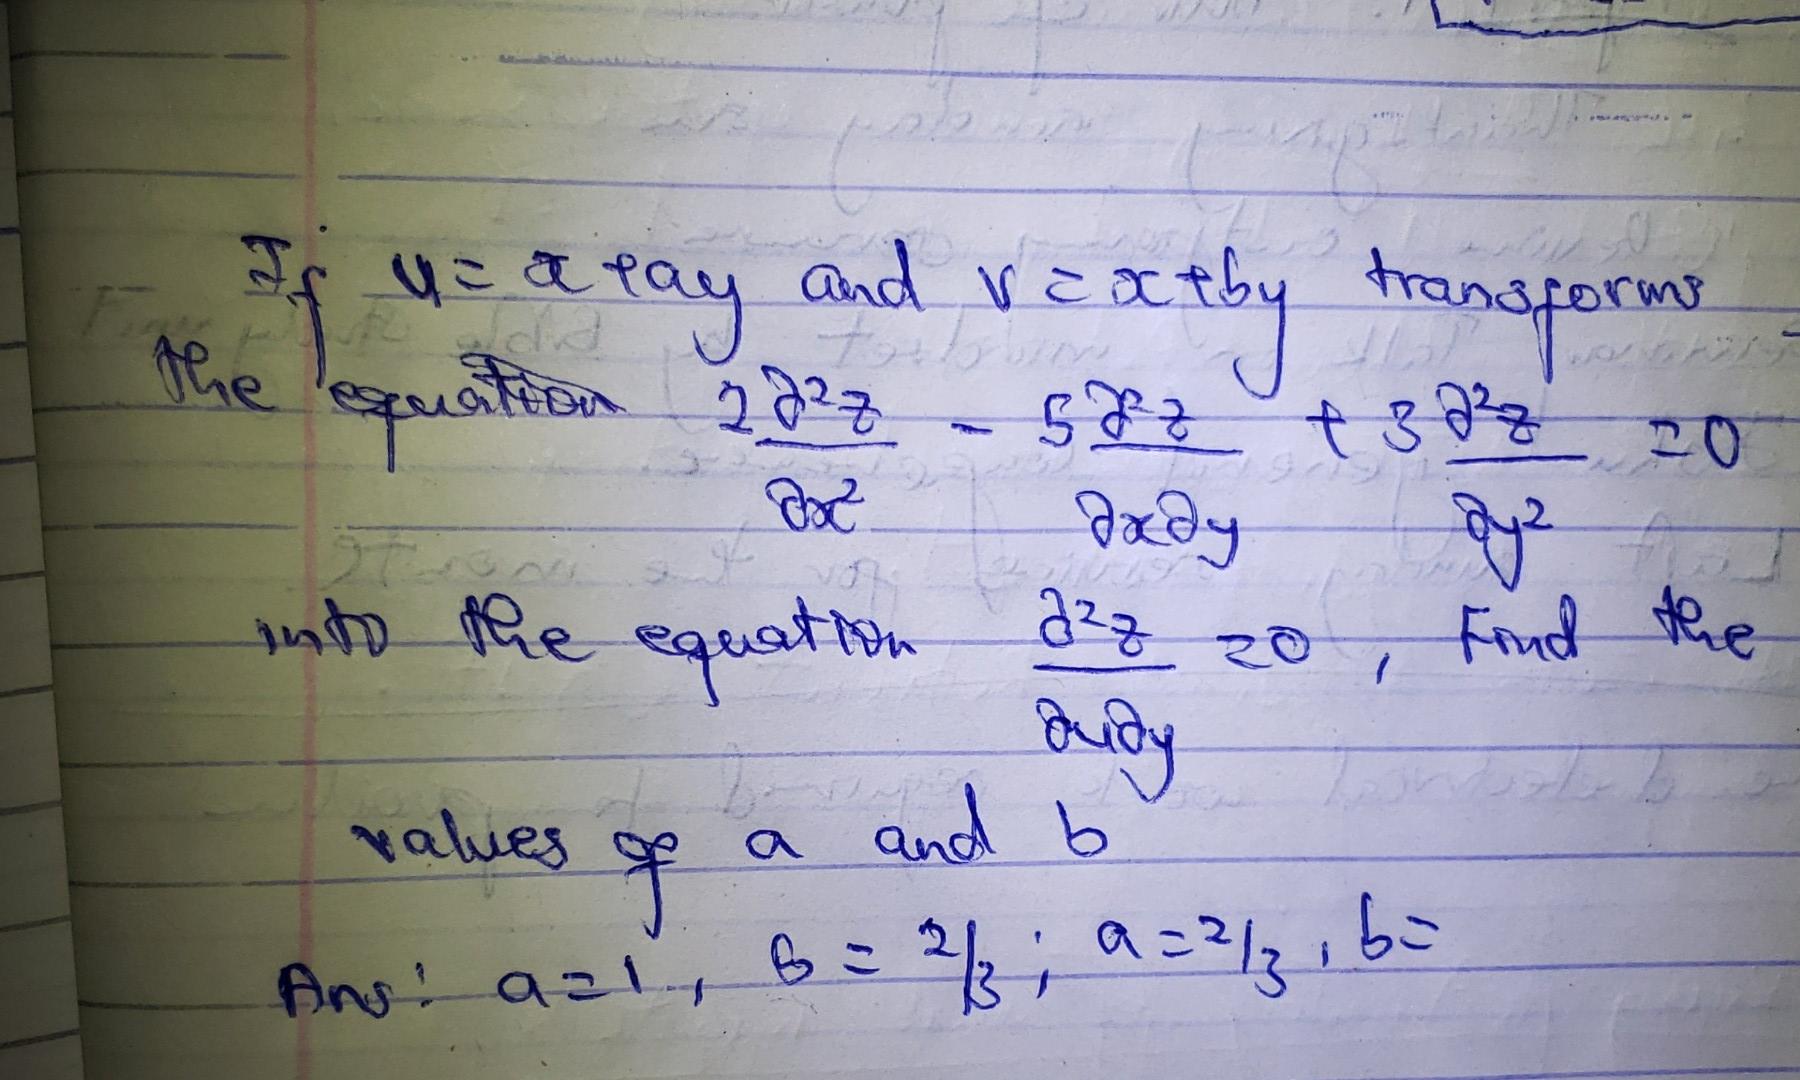 If u = x + ay and v = x + by transforms
the equation 2 ∂²z/∂x² - 5 ∂²z/∂x∂y + 3 ∂²z/∂y² = 0
into the equation ∂²z/∂u∂y = 0, Find the
values of a and b
Ans: a = 1, b = 2/3; a = 2/3, b =